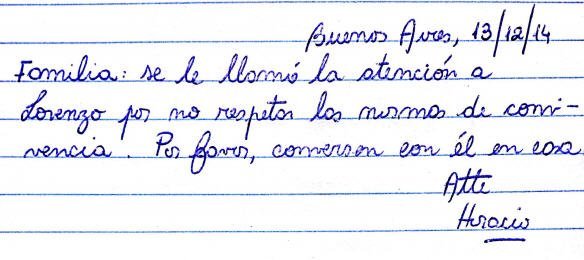 Buenos Aires, 13/12/14
Familia: se le llamó la atención a
Lorenzo por no respetar las normas de convi-
vencia. Por favor, conversen con él en casa.
Atte
Horacio